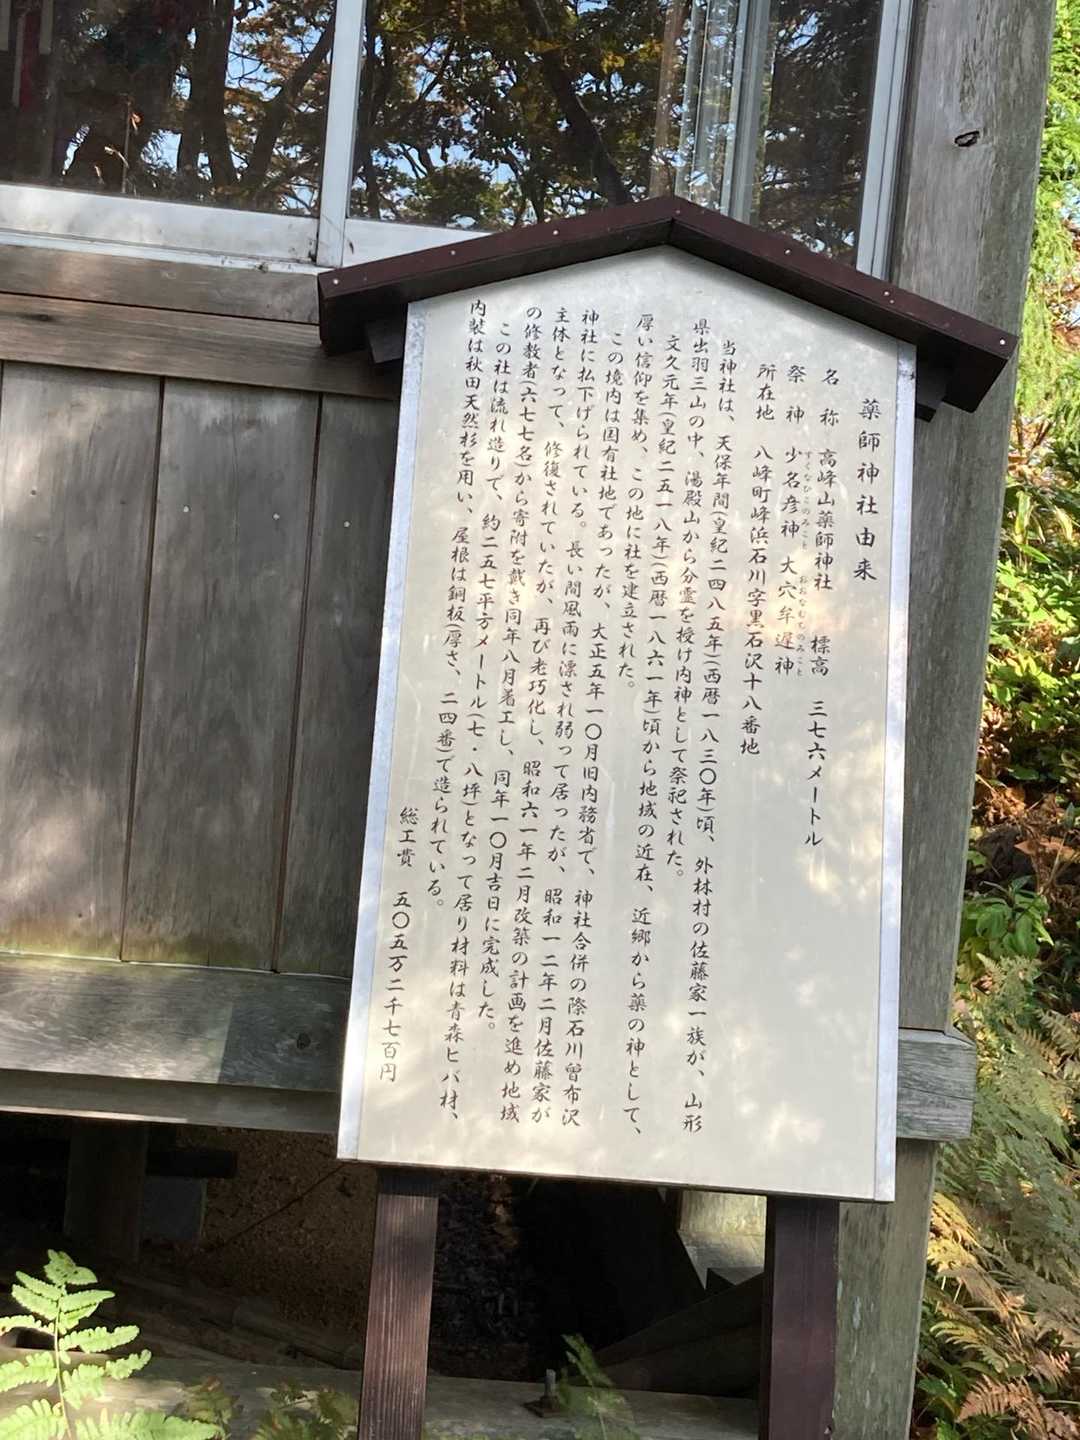 薬師神社由来
名称 高峰山薬師神社 標高 三七六メートル
祭神 少名彦神 大穴牟遅神
すくなひこのみこと おおなむちのみこと
所在地 八峰町峰浜石川字黒石沢十八番地
当神社は、天保年間(皇紀二四八五年)(西暦一八三〇年)頃、外林村の佐藤家一族が、山形
県出羽三山の中、湯殿山から分霊を授け内神として祭祀された。
文久元年(皇紀二五一八年)(西暦一八六一年)頃から地域の近在、近郷から薬の神として、
厚い信仰を集め、この地に社を建立された。
この境内は国有社地であったが、大正五年一〇月旧内務省で、神社合併の際石川曾布沢
神社に払下げられている。長い間風雨に漂され弱って居ったが、昭和一二年二月佐藤家が
主体となって、修復されていたが、再び老巧化し、昭和六一年二月改築の計画を進め地域
の修教者(六七七名)から寄附を戴き同年八月着工し、同年一〇月吉日に完成した。
この社は流れ造りで、約二五七平方メートル(七・八坪)となって居り材料は青森ヒバ材、
内装は秋田天然杉を用い、屋根は銅板(厚さ、二四番)で造られている。
総工費 五〇五万二千七百円